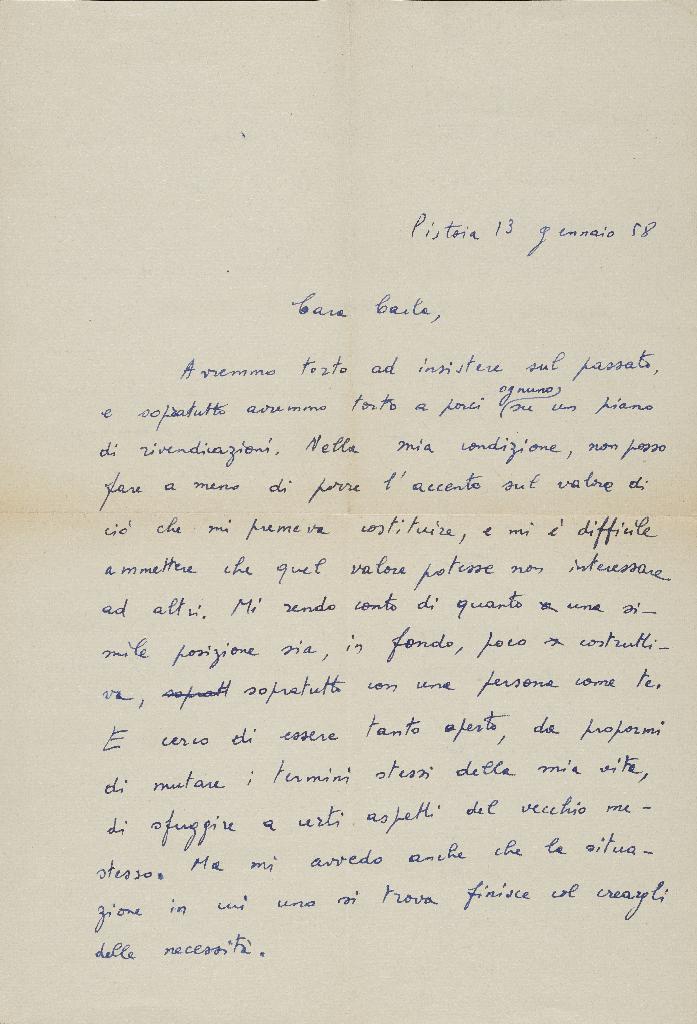 Pistoia 13 gennaio 58
Cara Carla,
Avremmo torto ad insistere sul passato,
e sopratutto avremmo torto a porci ognuno su un piano
di rivendicazioni. Nella mia condizione, non posso
fare a meno di porre l'accento sul valore di
ciò che mi premeva costituire, e mi è difficile
ammettere che quel valore potesse non interessare
ad altri. Mi rendo conto di quanto una si-
mile posizione sia, in fondo, poco costrutti-
va, sopratt sopratutto con una persona come te.
E cerco di essere tanto aperto, da propormi
di mutare i termini stessi della mia vita,
di sfuggire a certi aspetti del vecchio me-
stesso. Ma mi avvedo anche che la situa-
zione in cui uno si trova finisce col creargli
delle necessità.